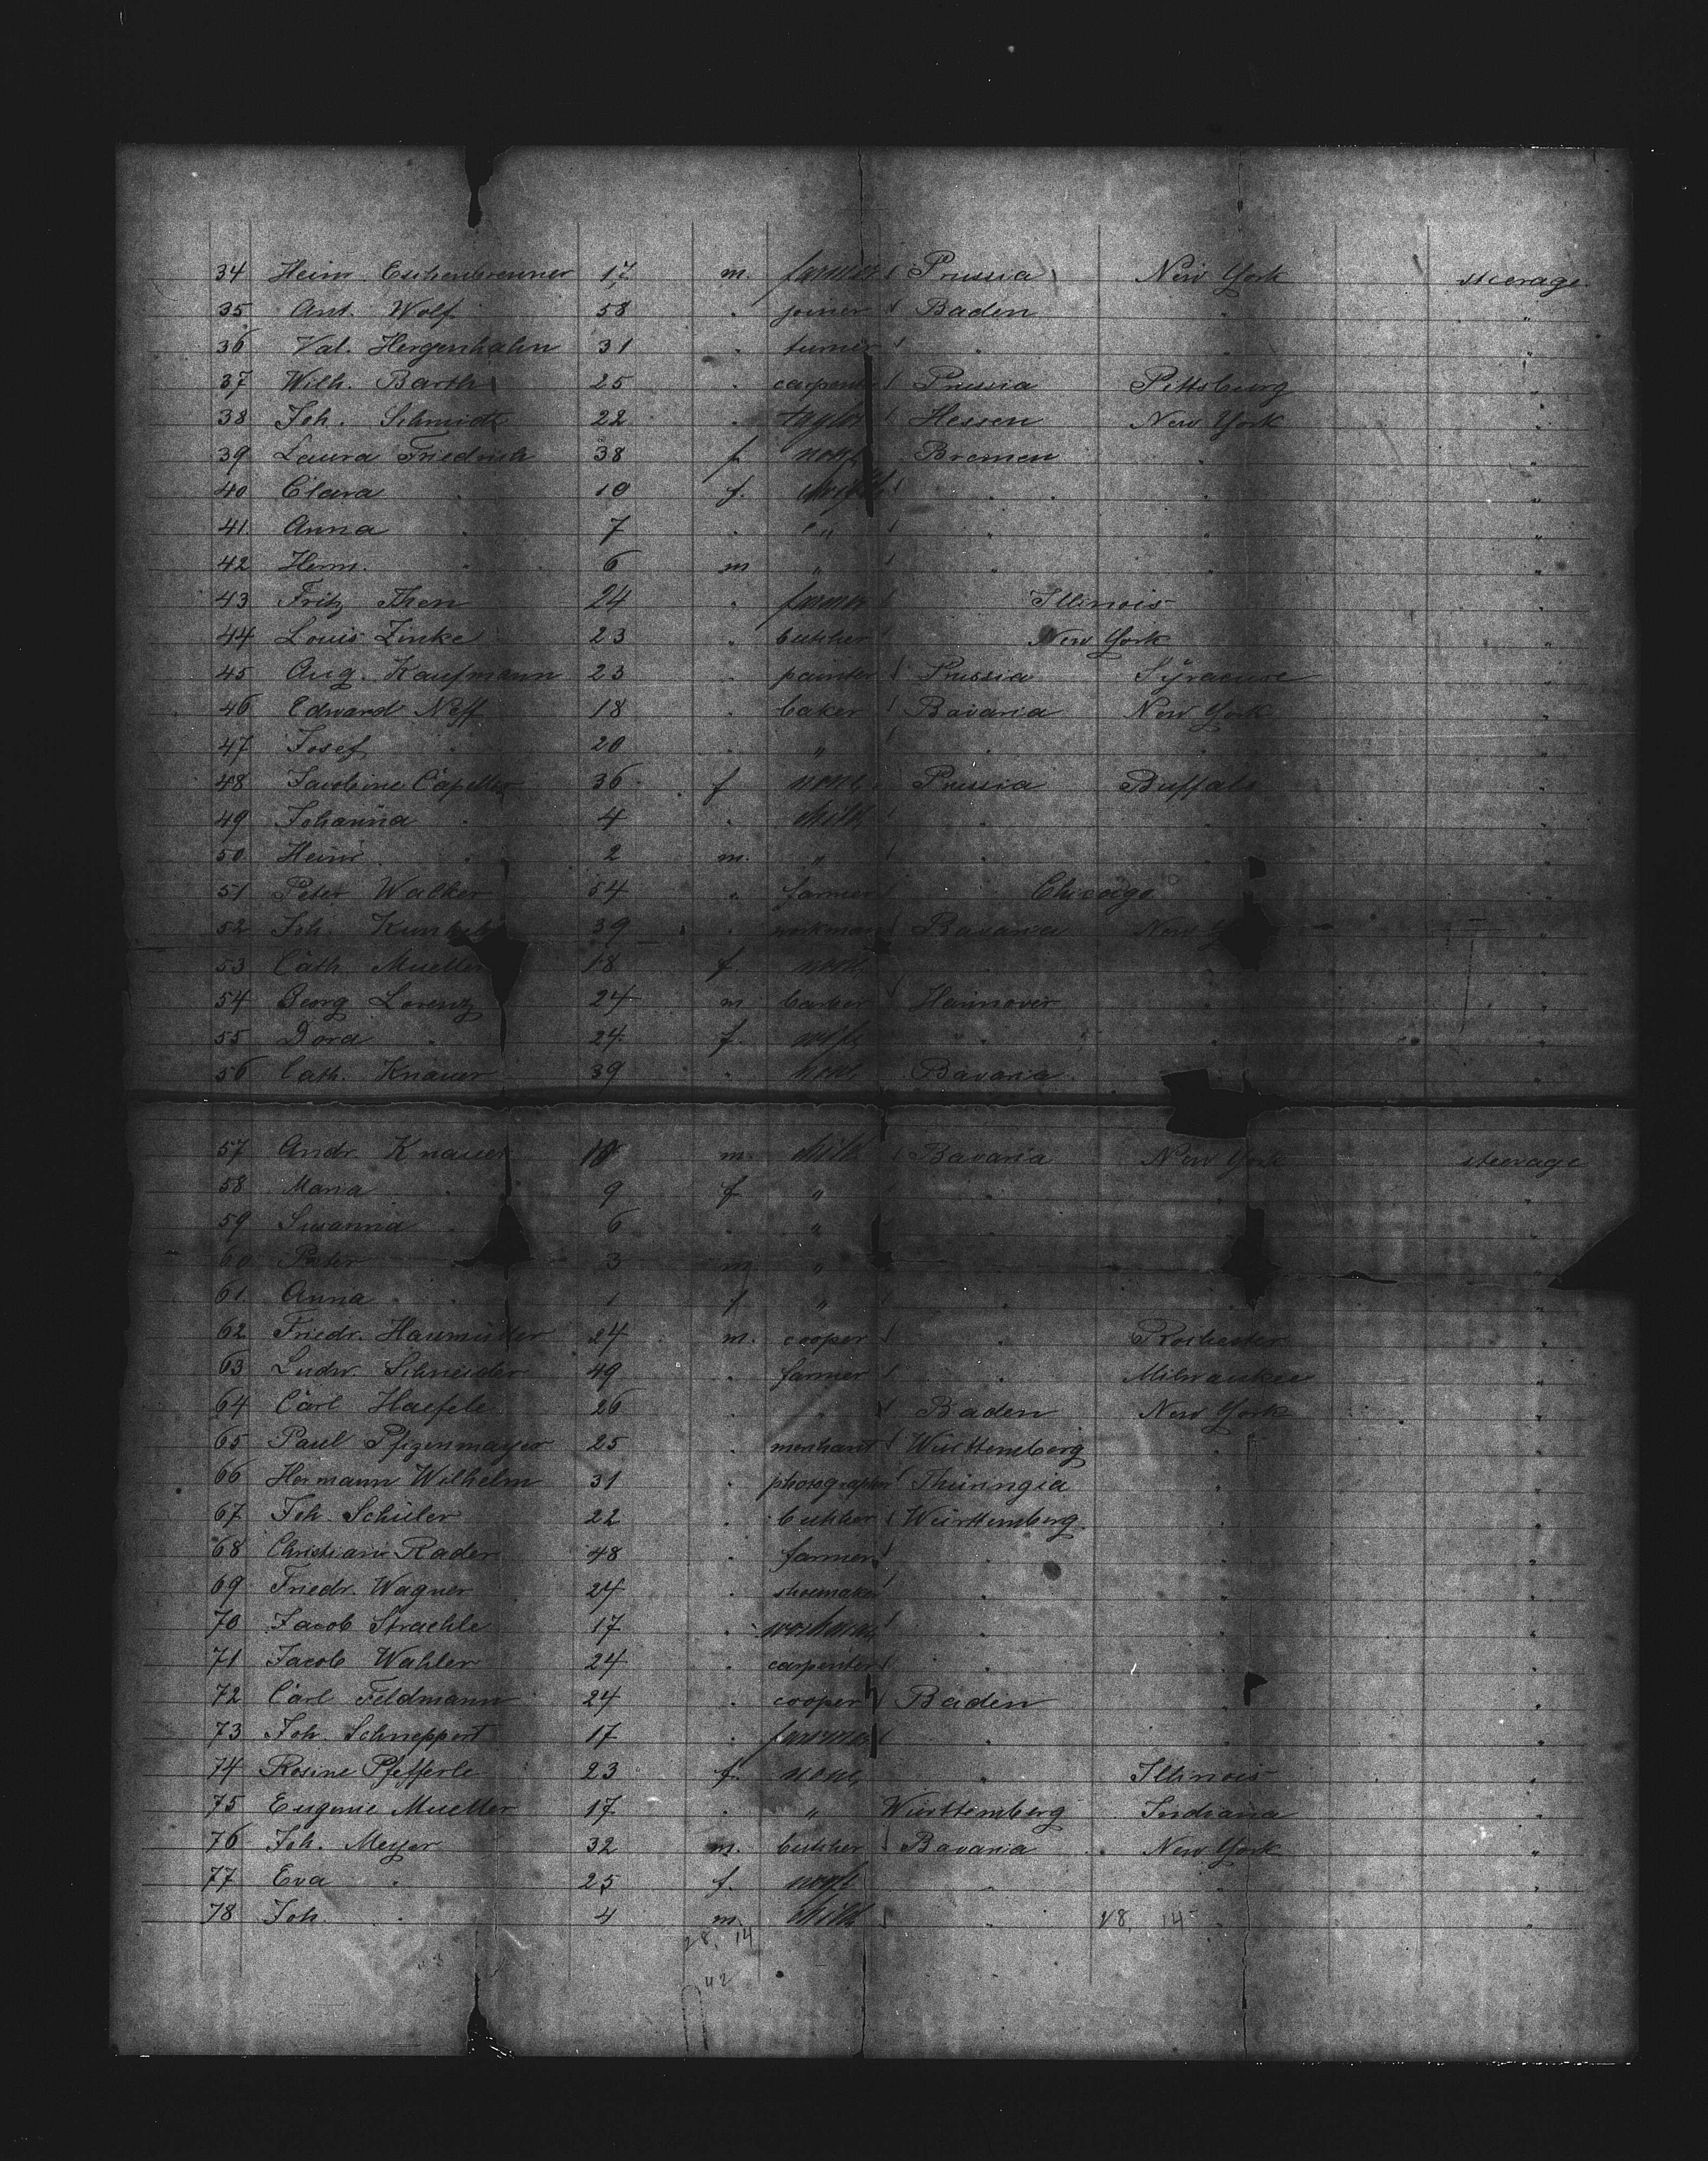 34 Heinr. Eschenbrenner 17 m. farmer Prussia New York steerage
35 Ant. Wolf 58 " joiner Baden " "
36 Val. Hergenhahn 31 " turner " " "
37 Wilh. Barth 25 " carpenter Prussia Pittsburg "
38 Joh. Schmidt 22 " taylor Hessen New York "
39 Laura Friedrich 38 f none Bremen " "
40 Clara " 10 f. child " " "
41 Anna " 7 " " " " "
42 Herm. " 6 m " " " "
43 Fritz Then 24 " farmer Illinois "
44 Louis Zinke 23 " butcher New York "
45 Aug. Kaufmann 23 " painter Prussia Syracuse "
46 Edward Neff 18 " baker Bavaria New York "
47 Josef " 20 " " " " "
48 Jacobine Capeller 36 f none Prussia Buffalo "
49 Johanna " 4 " child " " "
50 Heinr. " 2 m. " " " "
51 Peter Walker 54 " farmer " Chicago "
52 Joh. 39 " workman Bavaria New "
53 Cath. Mueller 18 f none " " "
54 Georg Lorenz 24 m barber Hannover " "
55 Dora " 24 f. wife " " "
56 Cath. Knauer 39 " none Bavaria
57 Andr. Knauer 10 m. child Bavaria New York steerage
58 Maria " 9 f " " " "
59 Susanna " 6 " " " "
60 Peter 3 m " " "
61 Anna " 1 f " " " "
62 Friedr. Haumüller 24 m. cooper " Rochester "
63 Ludw. Schneider 49 " farmer " Milwaukee "
64 Carl Haefele 26 " " Baden New York "
65 Paul Pfizenmayer 25 " merchant Württemberg " "
66 Hermann Wilhelm 31 " photographer Thüringia " "
67 Joh. Schüler 22 " butcher Württemberg " "
68 Christian Rader 48 " farmer " " "
69 Friedr. Wagner 24 " shoemaker " " "
70 Jacob Straehle 17 " workman " " "
71 Jacob Wahler 24 " carpenter " " "
72 Carl Feldmann 24 " cooper Baden " "
73 Joh. Schneppert 17 " farmer " " "
74 Rosine Pfefferle 23 f. none " Illinois "
75 Eugenie Mueller 17 " " Württemberg Indiana "
76 Joh. Meyer 32 m. butcher Bavaria New York "
77 Eva " 25 f. wife " " "
78 Joh. " 4 m. child " 28, 14 " "
28, 14
42